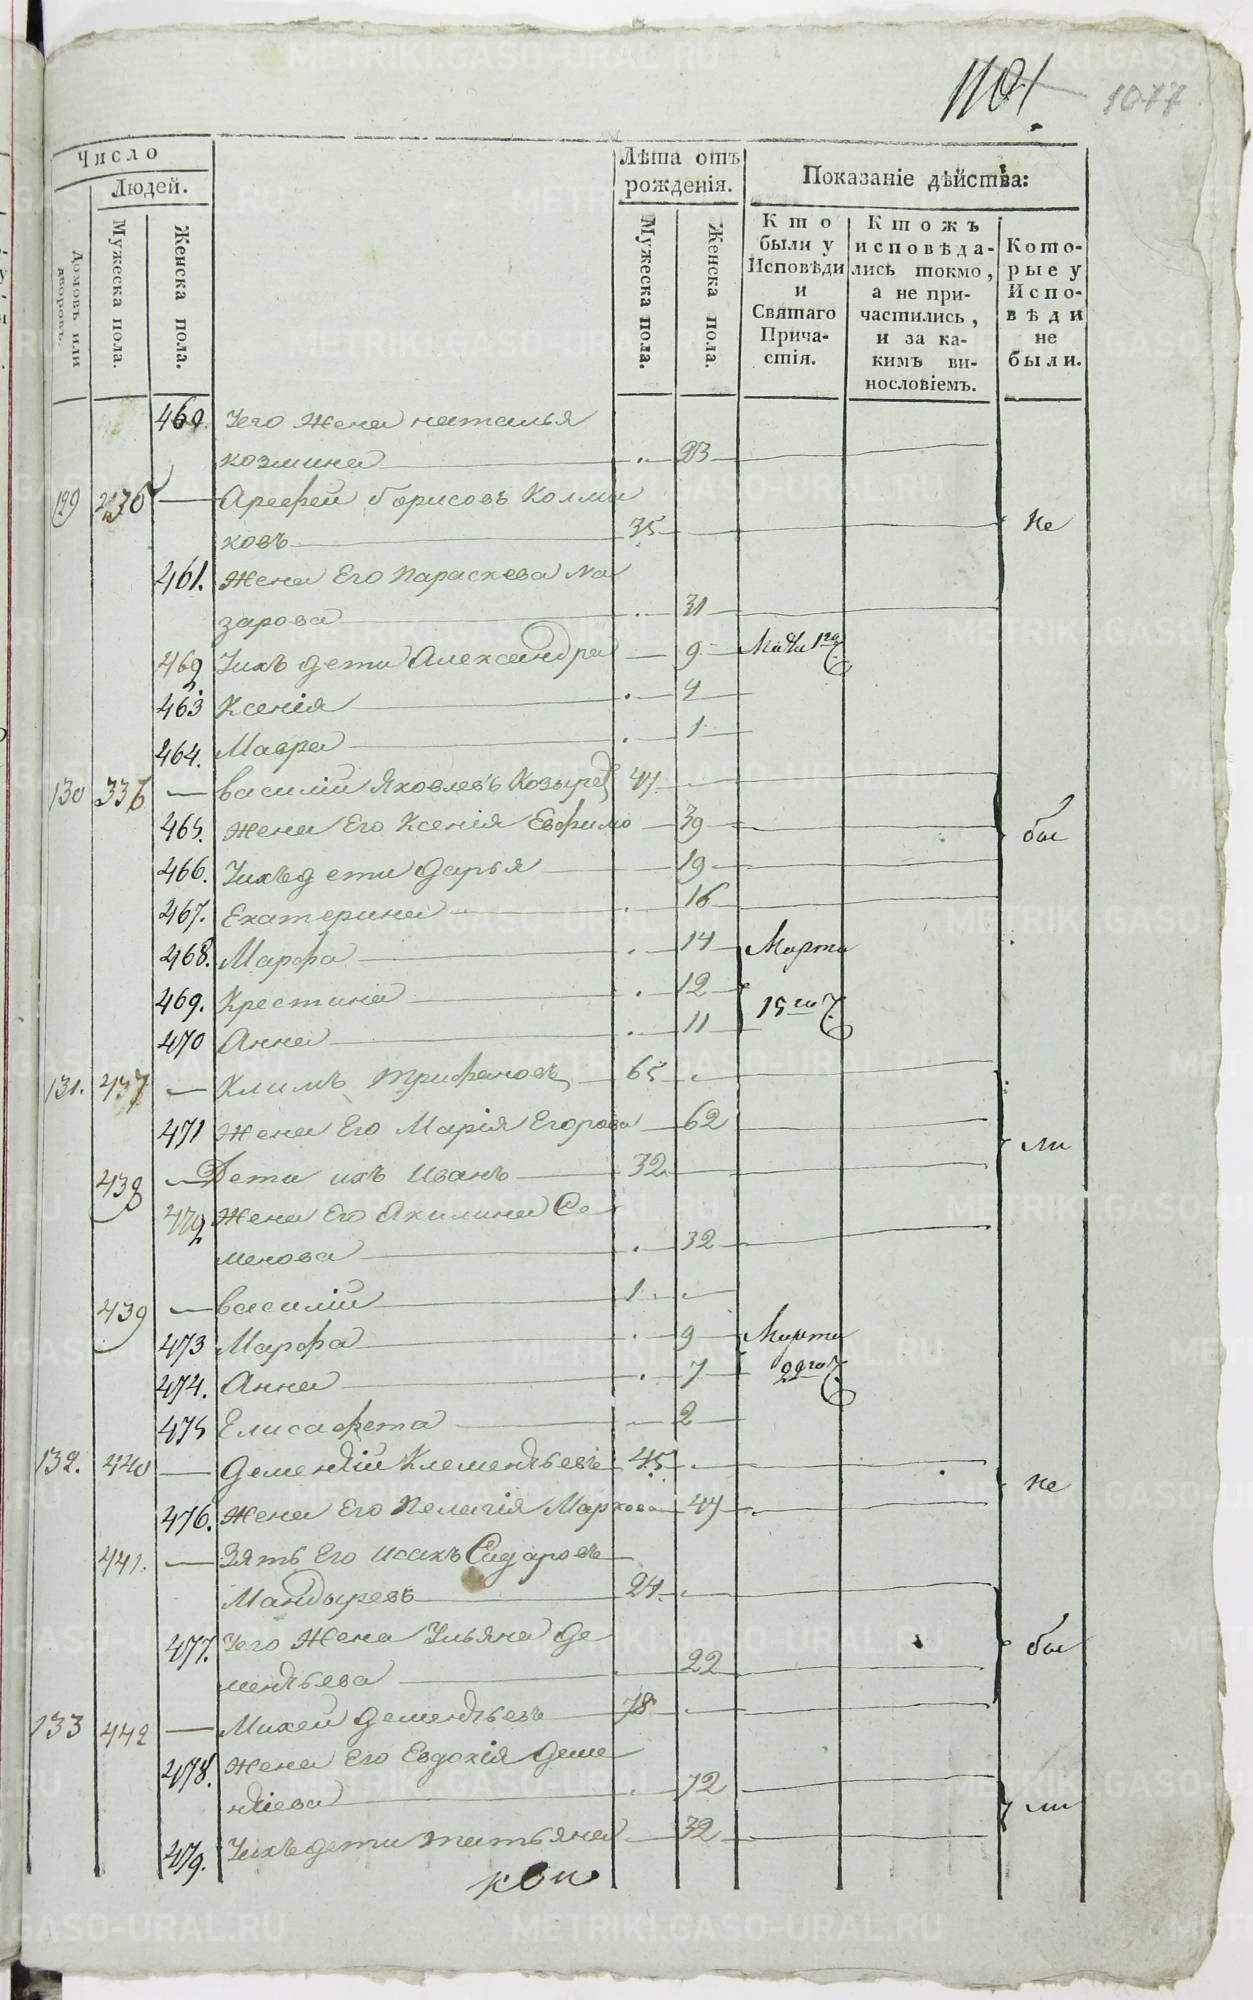 1101
1077
Число
Людей.
Домовъ или дворовъ.
Мужеска пола.
Женска пола.
Лѣта отъ рожденія.
Мужеска пола.
Женска пола.
Показаніе дѣйства:
Кто были у Исповѣди и Святаго Причастія.
Ктожъ исповѣдались токмо, а не причастились, и за какимъ винословіемъ.
Которые у Исповѣди не были.
460. Его Жена наталья
козмина 23
129 Арефей борисовъ Колма
ковъ 35 Не
461. Жена Его Параскева На
зарова 31
462 Ихъ дети Александра 9
463 Ксенія 4
464. Мавра 1
130 василій Яковлевъ Козырев 44
465. Жена Его Ксенія Евфимо 39 бы
466. Ихъ дети дарья 19
467. Екатерина 16
468. Марфа 14 Марта
469. Крестина 12 15го ч.
470 Анна 11
131. 437 Климъ трифановъ 65
471 Жена Его Марія Егорова 62 ли
438 Дети ихъ Иванъ 32
472 Жена Его Акилина Се
менова 32
439 василій 1
473 Марфа 9 Марта
474. Анна 7 22го ч.
475 Елисафета 2
132. 440 дементій Клементьевъ 45
476. Жена Его Пелагія Маркова 44 Не
441. Зять Его Исакъ Сидаровъ
Мандыревъ 24
477. Его Жена Ульяна де
ментьева 22 бы
133 442 Михей дементьевъ 78
478. Жена Его Евдокія деме
нтіева 72 ли
479. Ихъ дети татьяна 32